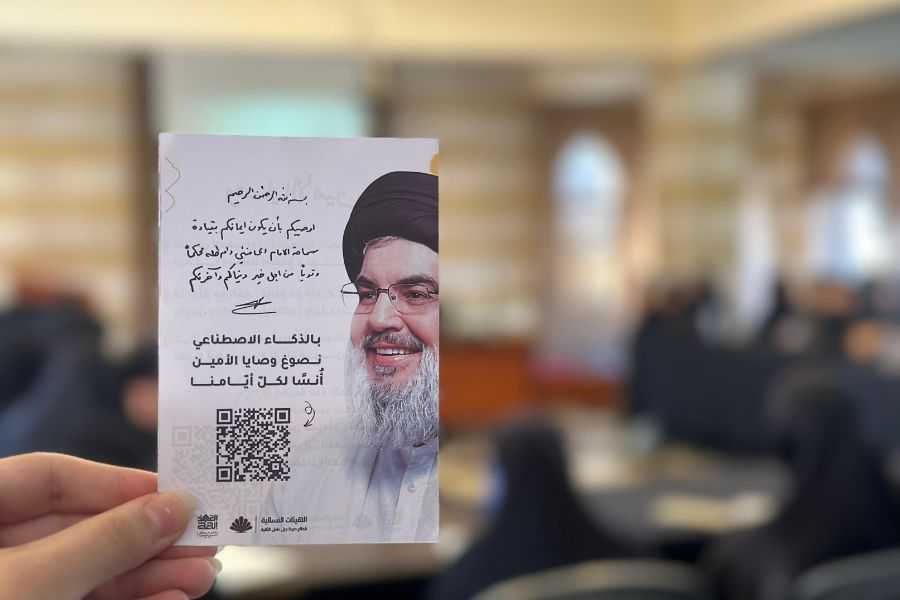 بسم الله الرحمن الرحيم
اوصيكم بأن يكون ايمانكم بقيادة
سماحة الامام الخامنئي دام ظله محكماً
وقوياً من اجل خير دنياكم وآخرتكم
بالذكاء الاصطناعي
نصوغ وصايا الأمين
أُنسًا لكلّ أيّامنا
الهيئات النسائية